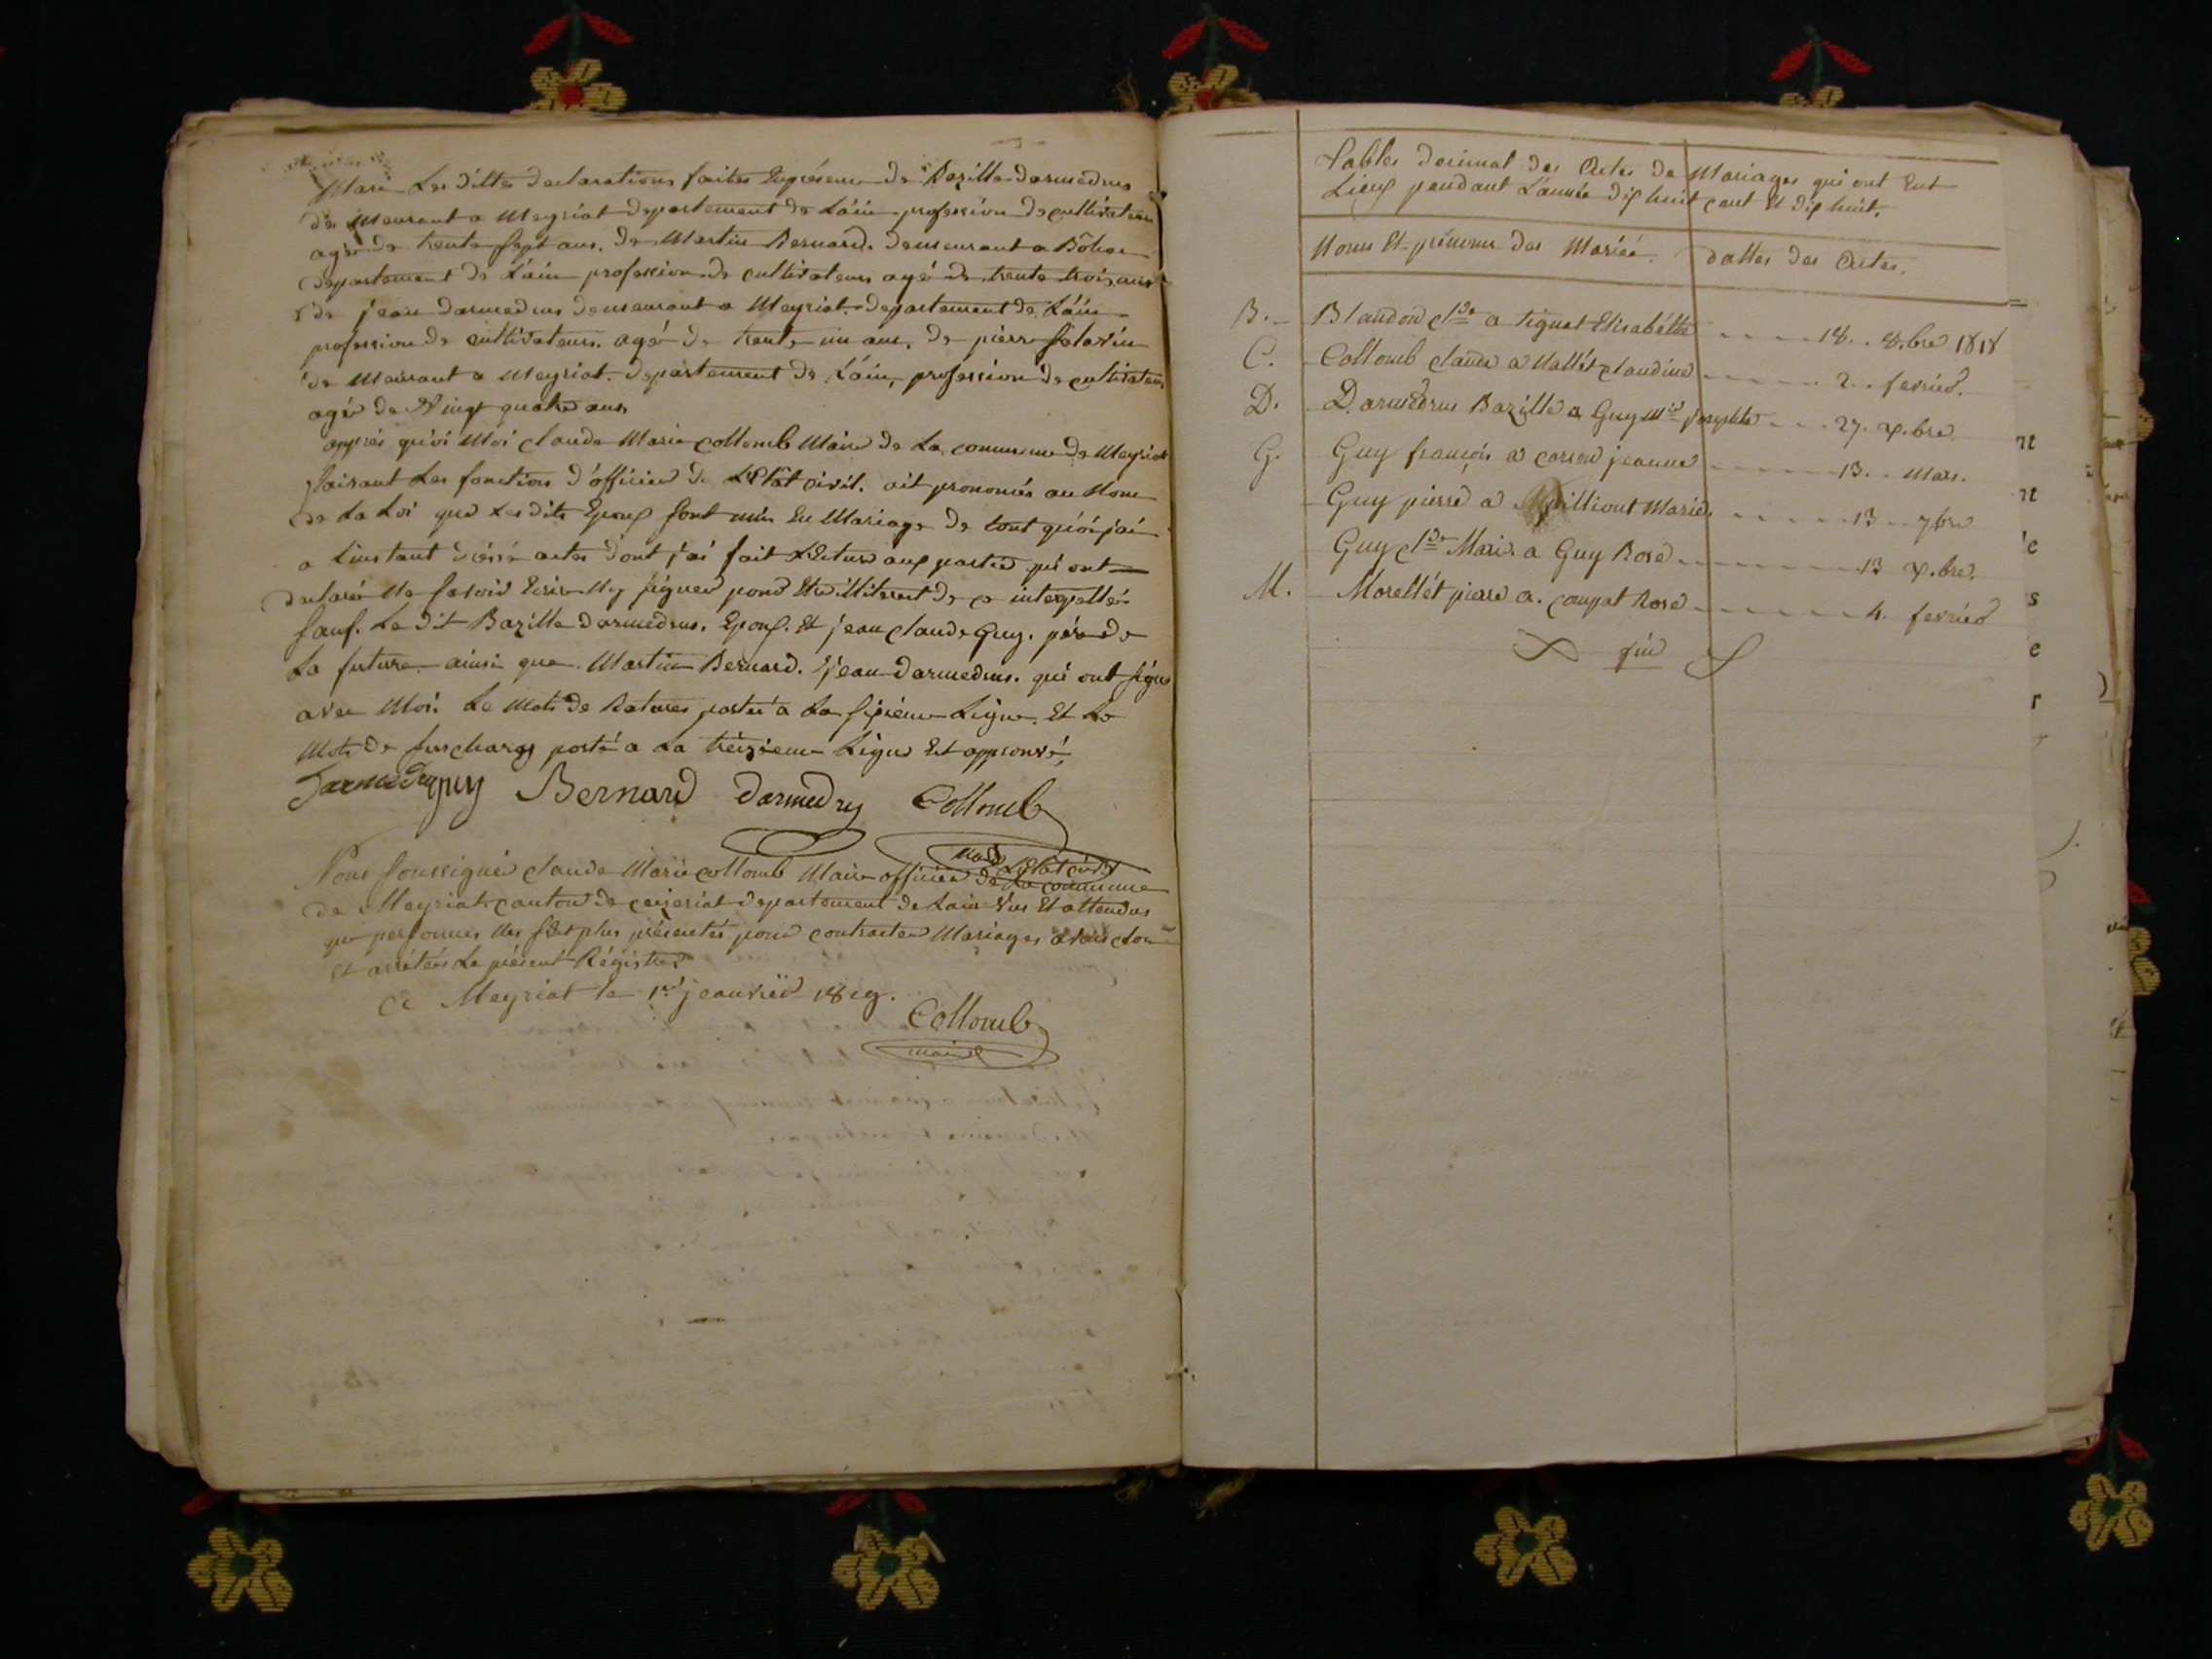 Mari Les dittes declarations faites En présence de Bazille darmedrus
de Meurant a Meyriat departement de Láin profession de cultivateur
agé de trente sept ans. de Martin Bernard. demeurant a Bôhas
departement de Láin profession de cultivateurs agé de trente trois ans
de jean darmedrus demeurant a Meyriat. departement de Láin
profession de cultivateurs. agé de trente un ans. de pierre
de Meurant a Meyriat. departement de Láin, profession de cultivateur
agé de Vingt quatre ans
apprés qu'oi Moi claude Marie collomb Maire de La commune de Meyriat
faisant Les fonctions d'officier de L'Etât civil. ait prononcés au Nom
de La Loi que Les dits Epoux sont unis En Mariage de tout qu'oi j'ai
a L'instant actes dont j'ai fait Lecture aux parties qui ont
declaré Ne savoir Ecrire Ny signer pour Etre illiteret de ce interpellés
sauf. Le dit Bazille darmedrus. Epoux. Et jean claude Guy. pére de
La future ainsi que Martin Bernard. jean darmedrus. qui ont signé
avec Moi. Le Mots de Ratures porté a La Ligne. Et Le
Mots de surcharges porté a La treizieme Ligne Est approuvé,
Darmedru guy Bernard darmedrus Collomb
Maire
Nous soussigné claude Marie collomb Maire officier de L'Etât civil
La commune
de Meyriat canton de ceizeriat departement de Lain Vus Et attendus
que personnes Ne s'Est plus présentés pour contracter Mariages avons clos
Et arrêtés Le présent Régistre
a Meyriat le 1er jeanvier 1819.
Collomb
maire
Tables desimal des Actes de Mariages qui ont Eut
Lieux pendant L'année dix huit cent Et dix huit.
Noms Et prénoms des Mariés. dattes des Actes.
B. Blandon cde a tignat Elisabétte 18. 8.bre 1818
C. Collomb claude a Mallét claudine 2. fevrier.
D. Darmedrus Bazille a Guy Mie josephte 27. x.bre
G. Guy françois a carron jeanne 13. Mars.
Guy pierre a Marie 13 7bre
Guy cde Marie a Guy Rose 13 x.bre.
M. Morellét pierre a. coupat Rose 4. fevrier
fin